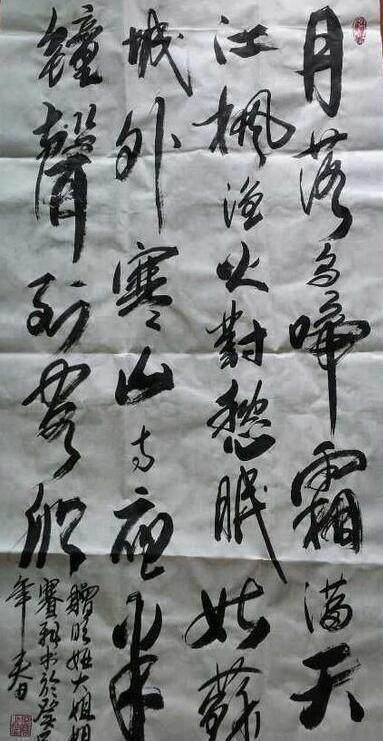 月落烏啼霜滿天
江楓漁火對愁眠姑蘇
城外寒山寺夜半
鐘聲到客船
贈 大姐
書於癸
年春日